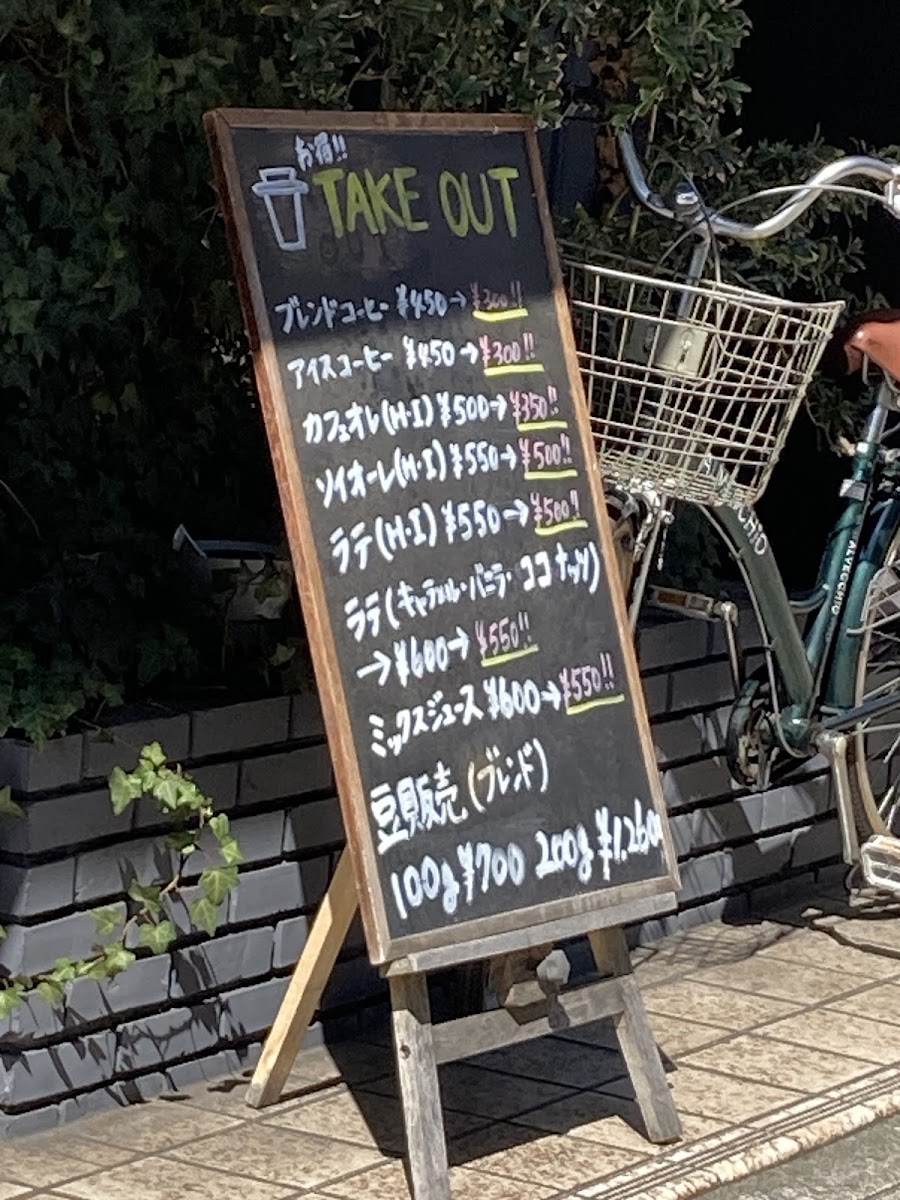 お得!!
TAKE OUT
ブレンドコーヒー ¥450→¥300!!
アイスコーヒー ¥450→¥300!!
カフェオレ(H・I)¥500→¥350!!
ソイオーレ(H・I)¥550→¥500!!
ラテ(H・I)¥550→¥500!
ラテ(キャラメル・バニラ・ココナッツ)
→¥600→¥550!!
ミックスジュース ¥600→¥550!!
豆販売(ブレンド)
100g¥700 200g¥1,260
ALVECCHIO